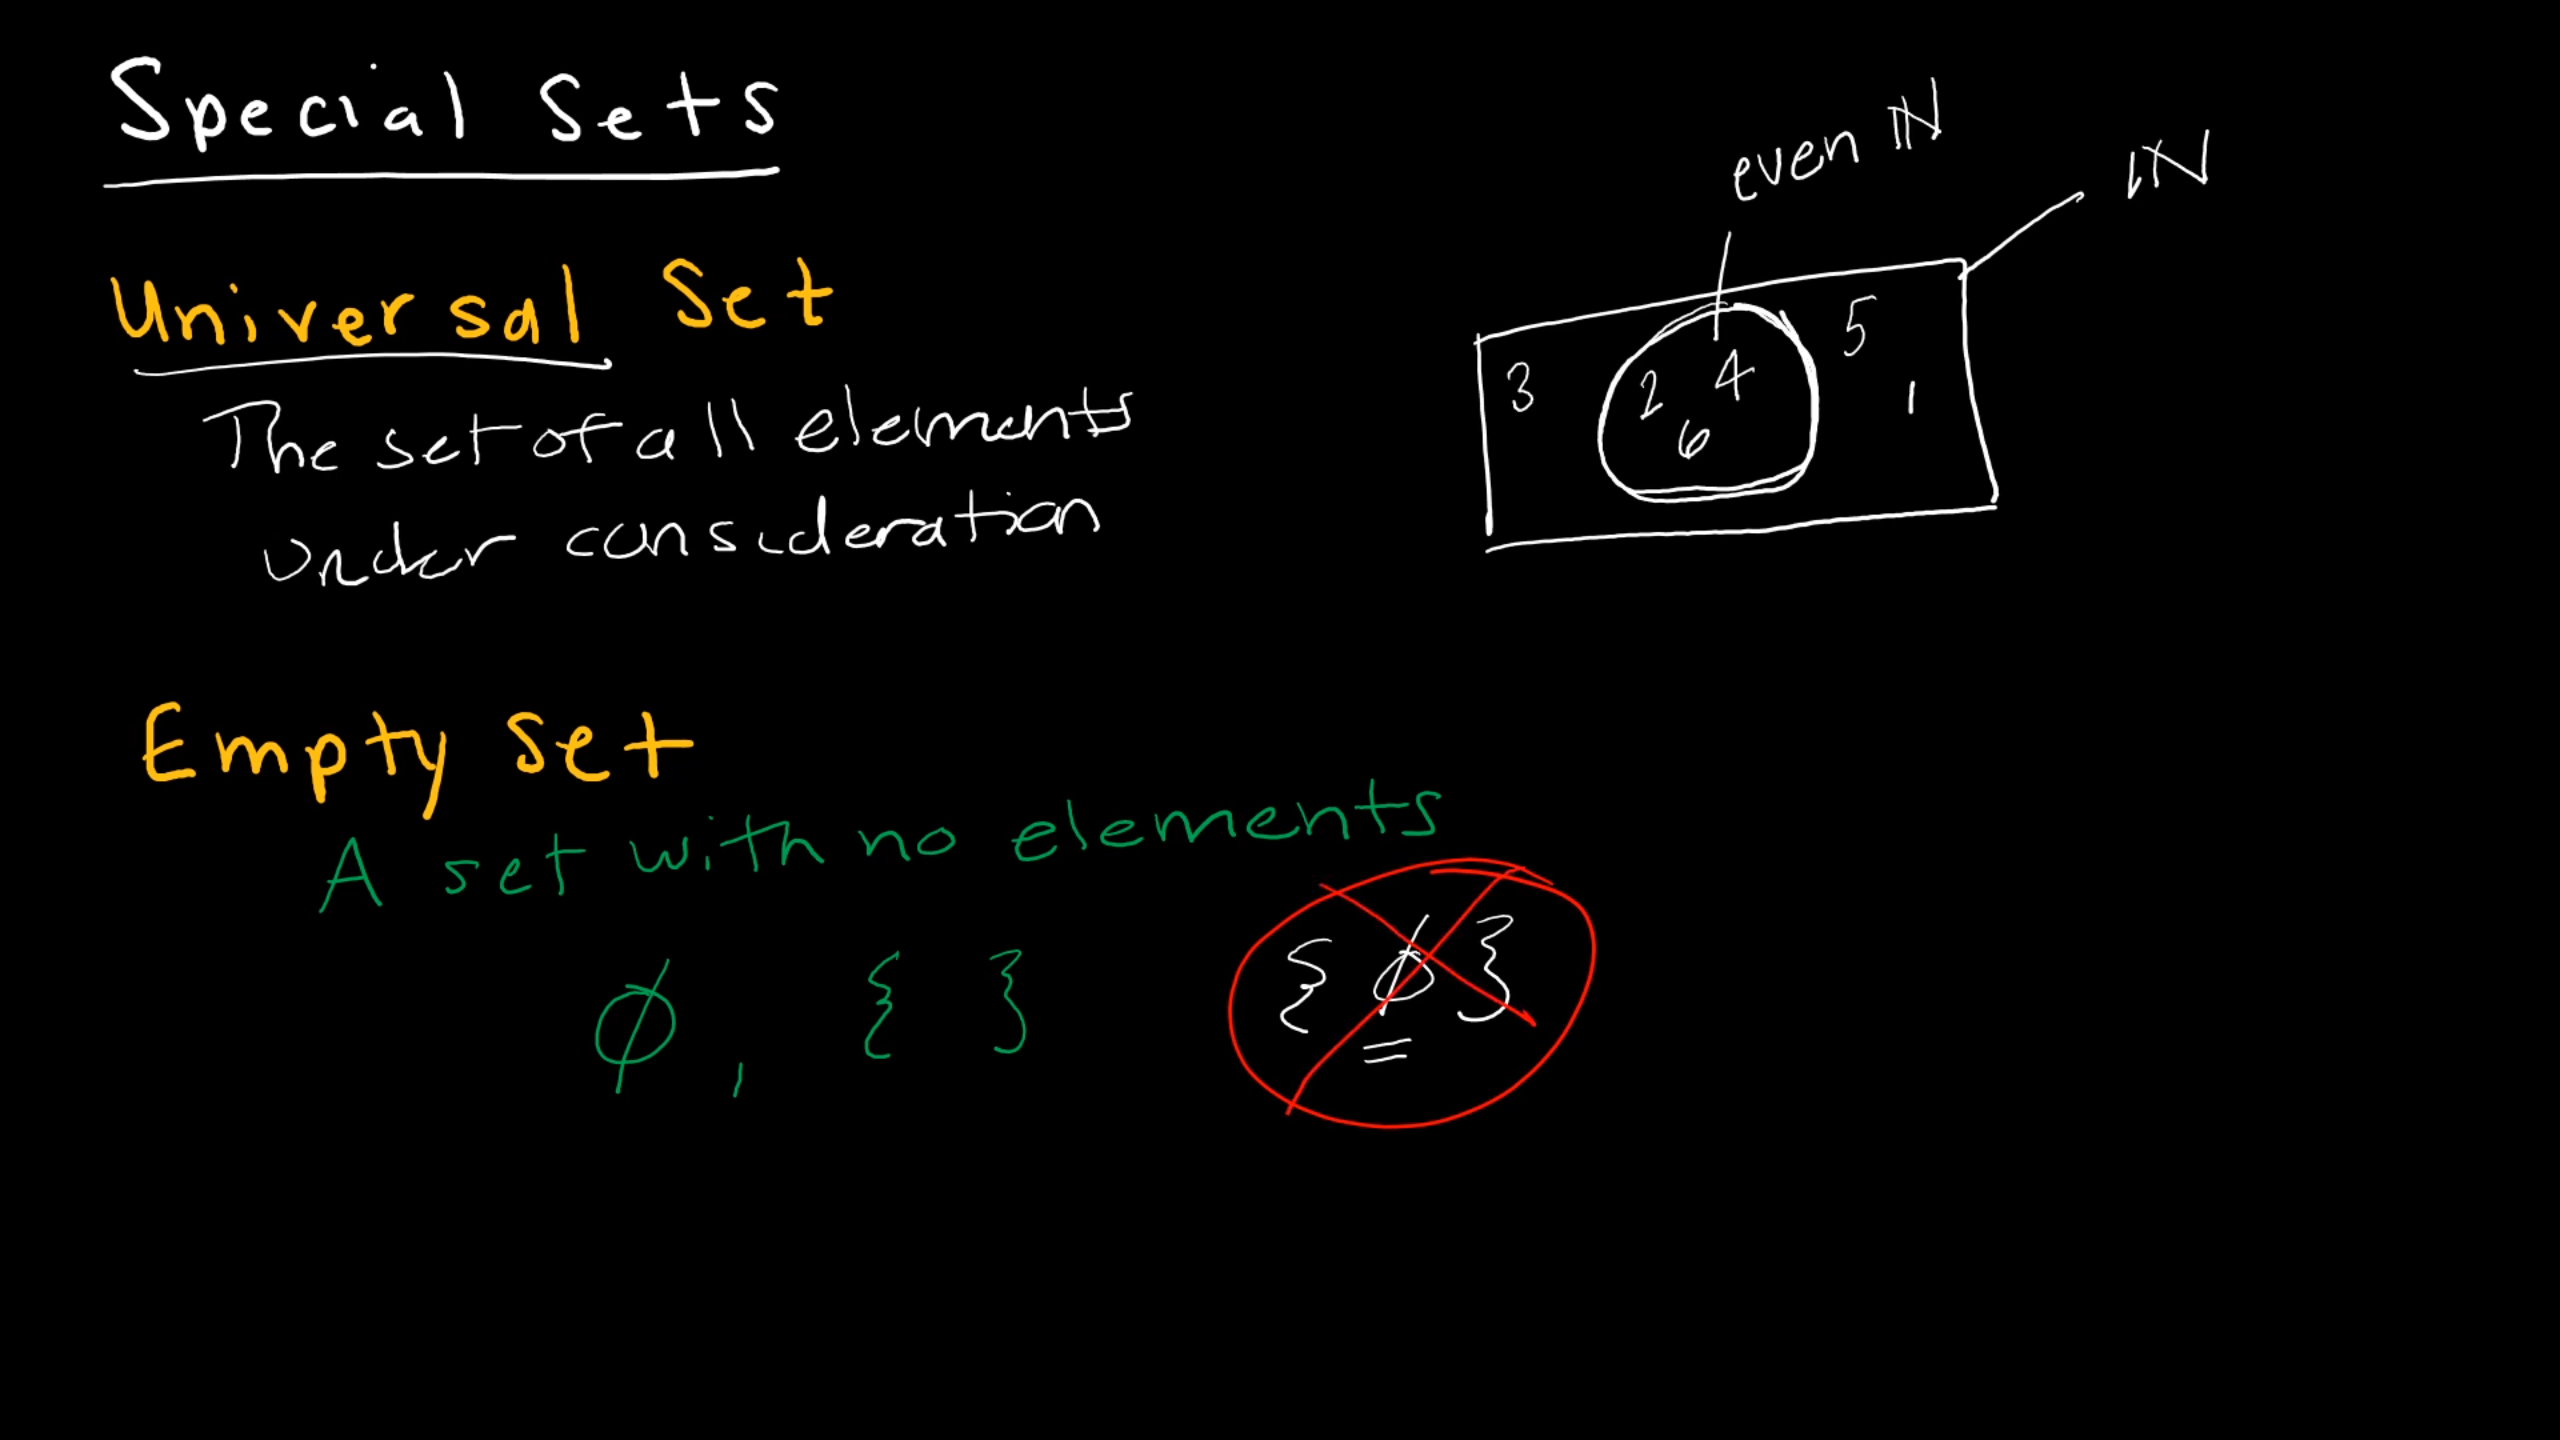 Special Sets
even ℕ
ℕ
Universal Set
The set of all elements
under consideration
3 2 4 5
6 1
Empty Set
A set with no elements
∅, { } { ∅ }